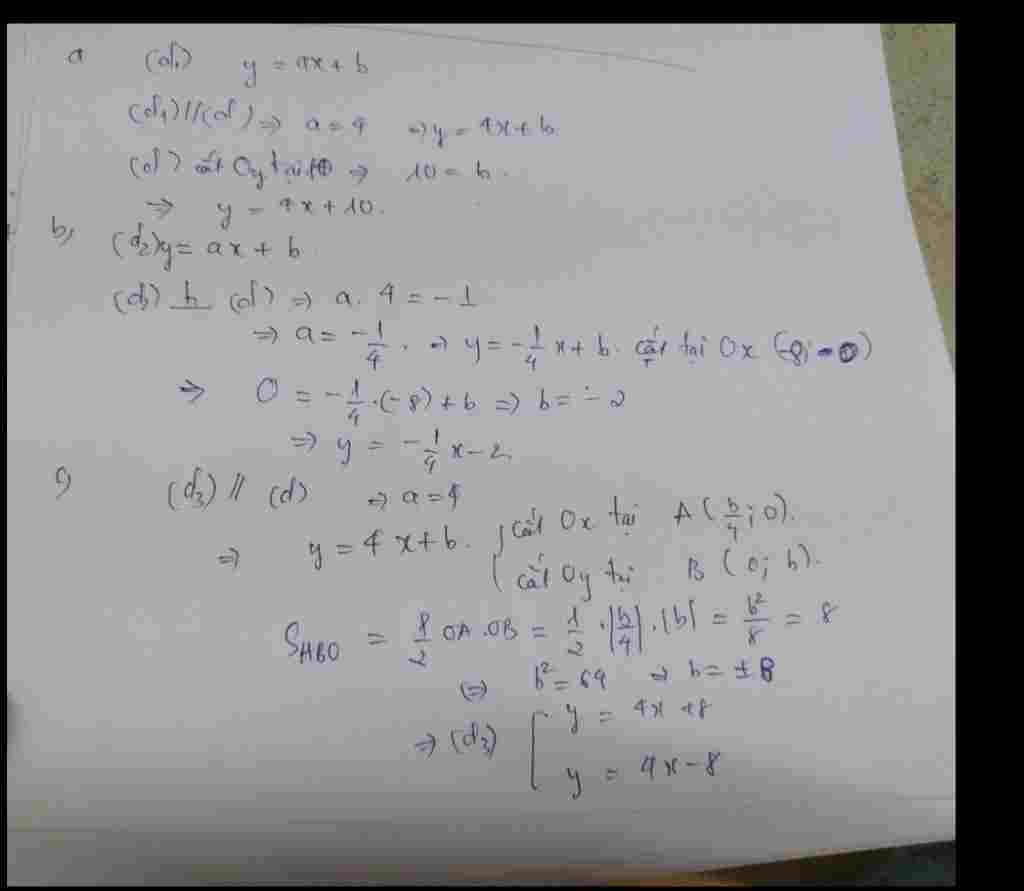 a (d₁) y = ax + b
(d₁) // (d) => a = 4 => y = 4x + b
(d) cắt Oy tại 10 => 10 = b.
=> y = 4x + 10.
b, (d₂) y = ax + b
(d₂) (d) => a. 4 = -1
=> a = -1/4. => y = -1/4 x + b. cắt tại Ox (-8; 0)
=> 0 = -1/4 . (-8) + b => b = -2
=> y = -1/4 x - 2.
c) (d₃) // (d) => a = 4
=> y = 4x + b. { cắt Ox tại A (b/4; 0).
cắt Oy tại B (0; b).
S_ABO = 1/2 OA.OB = 1/2 . |b/4| . |b| = b²/8 = 8
(=) b² = 64 => b = ±8
=> (d₃) [ y = 4x + 8
y = 4x - 8